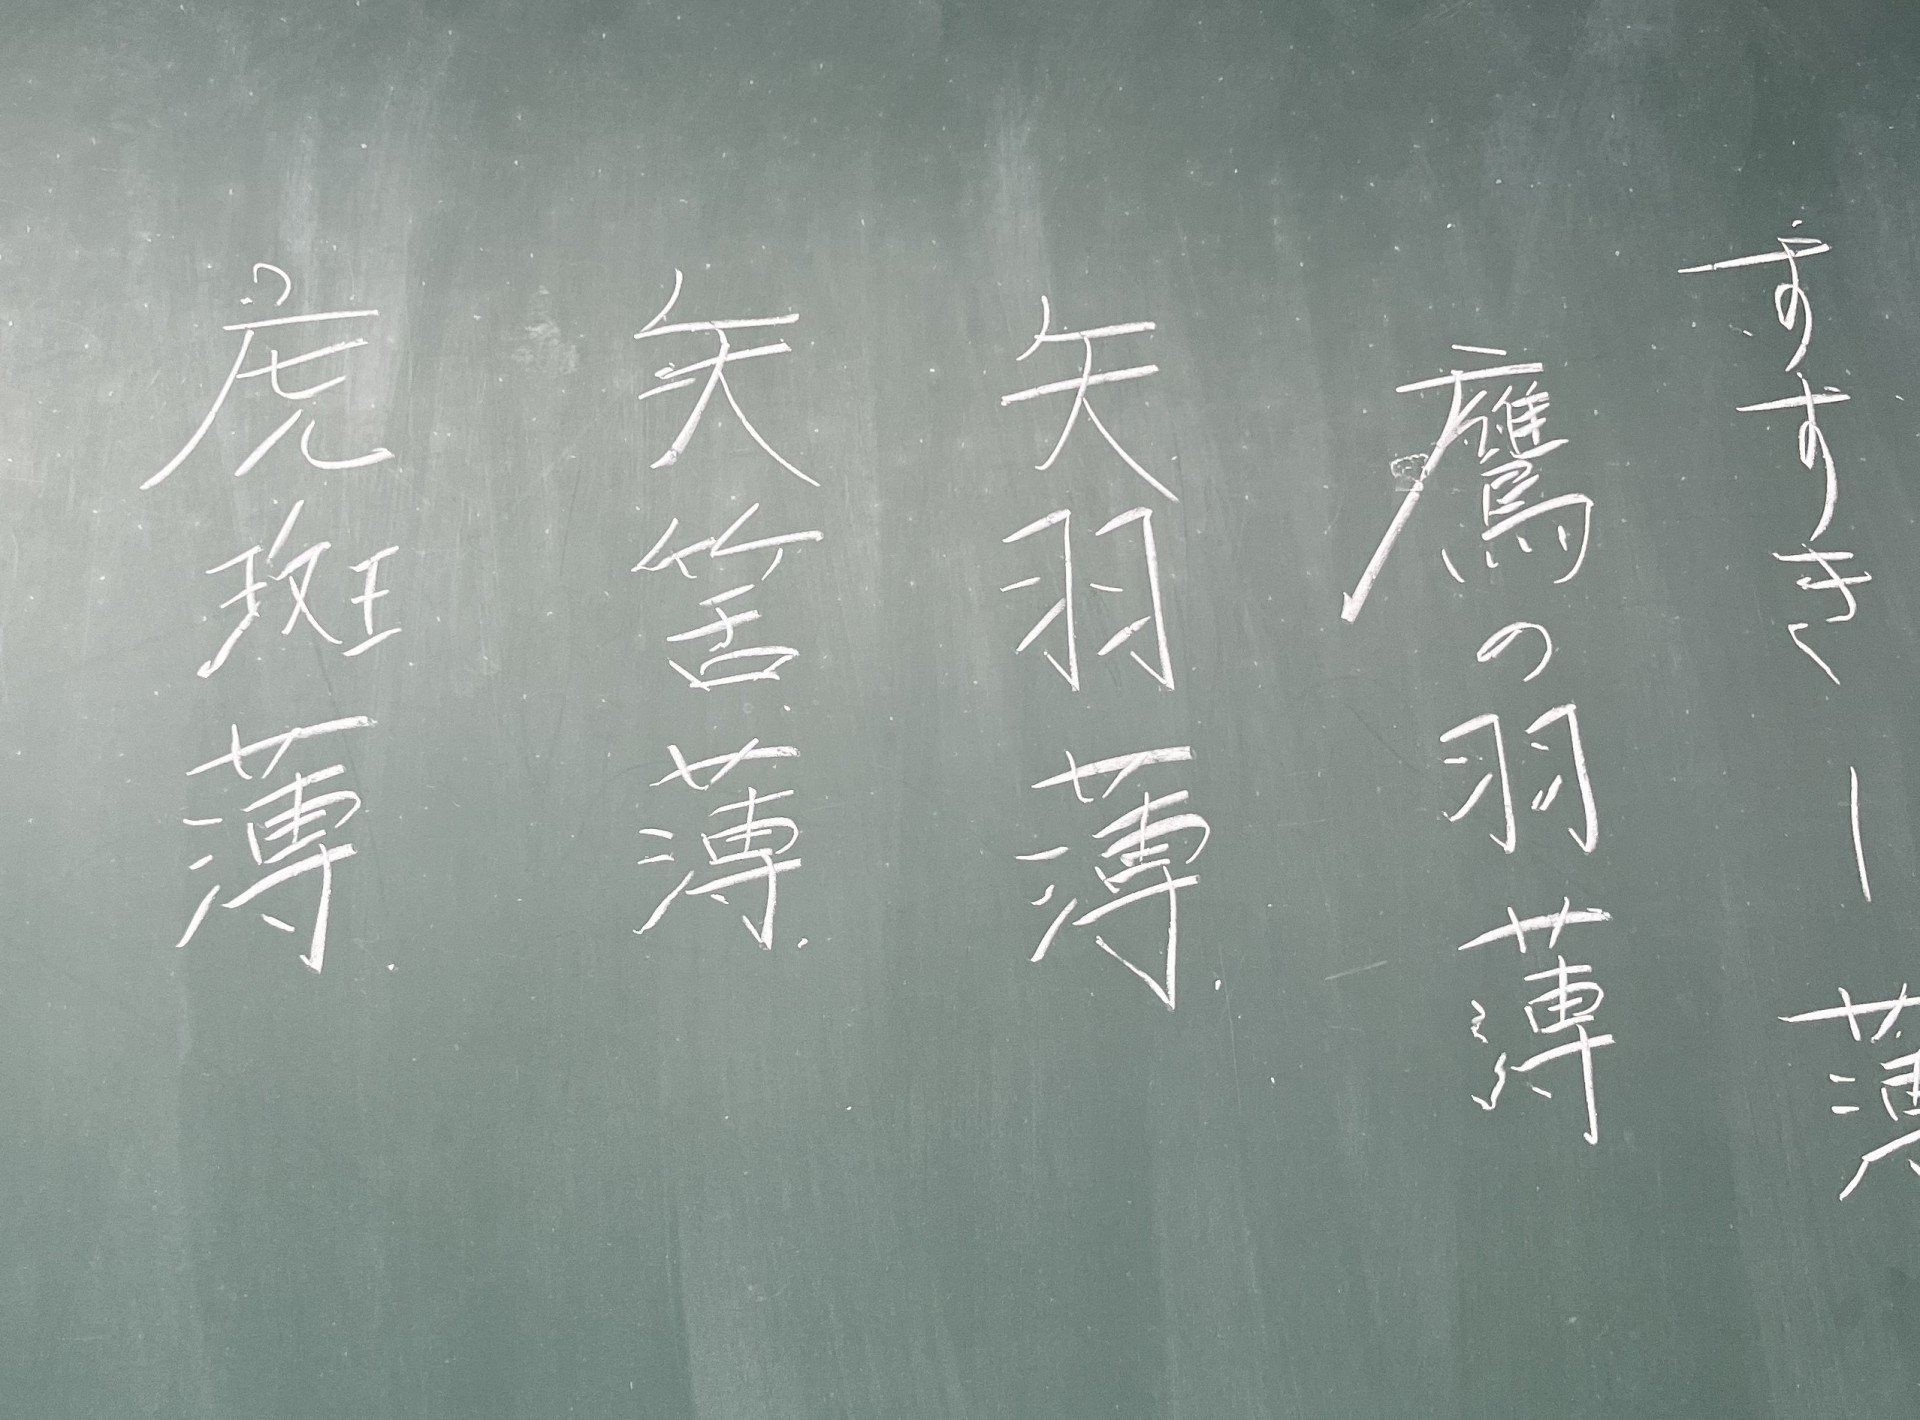 すすき ー 薄
鷹の羽薄
矢羽薄
矢筈薄
虎斑薄